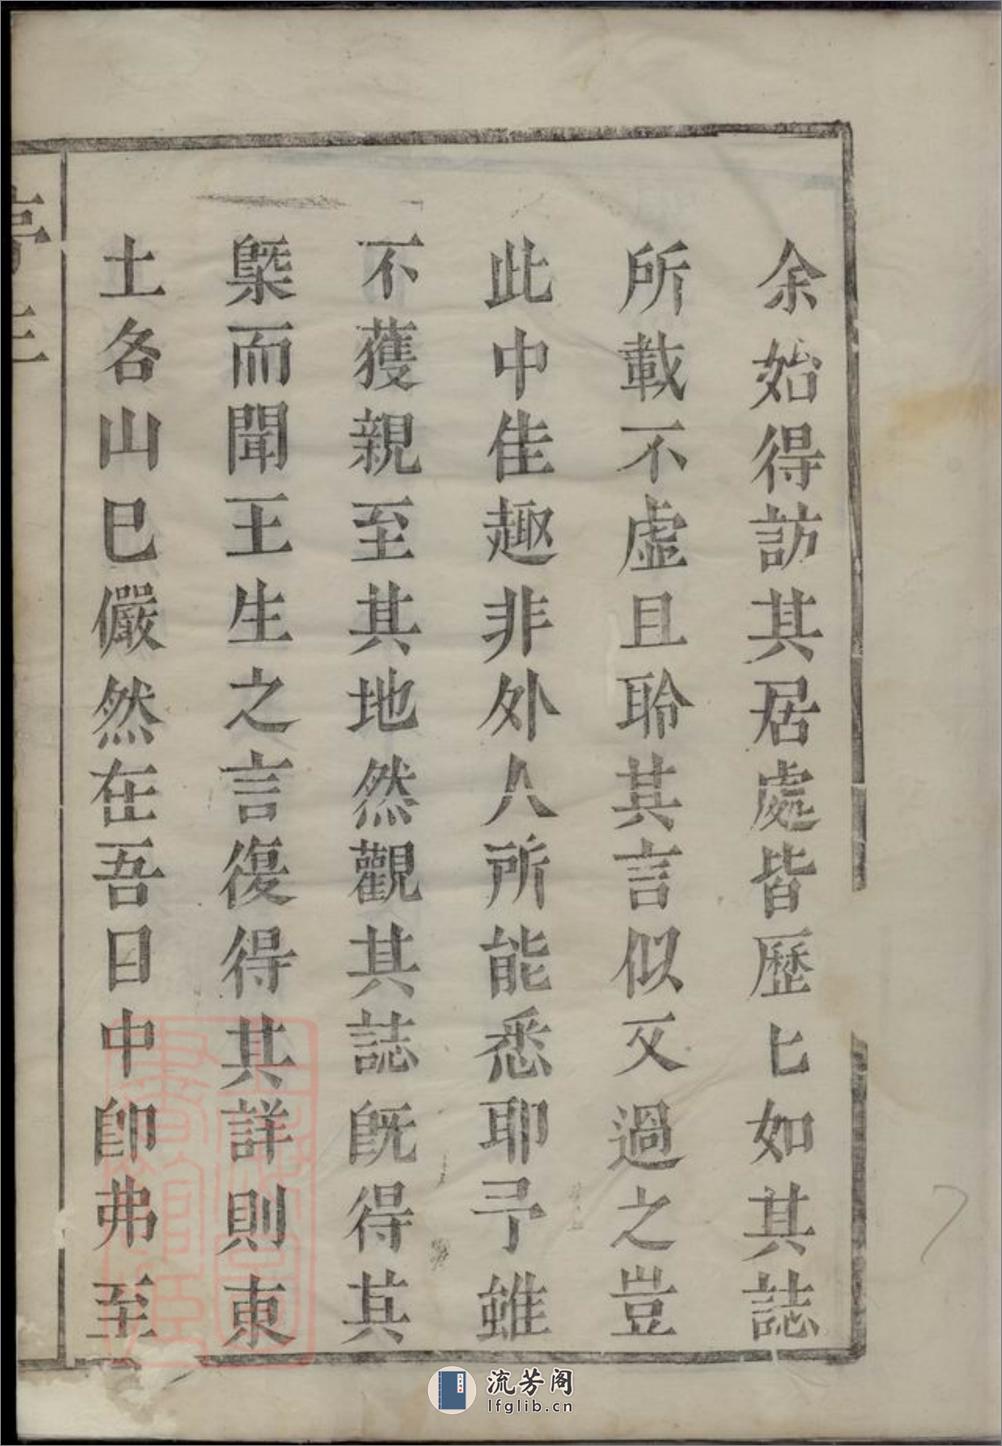 余始得訪其居處皆歷匕如其誌
所載不虛且聆其言似又過之豈
此中佳趣非外人所能悉耶予雖
不獲親至其地然觀其誌旣得其
槩而聞王生之言復得其詳則東
土各山已儼然在吾目中卽弗至
流芳阁
lfglib.cn